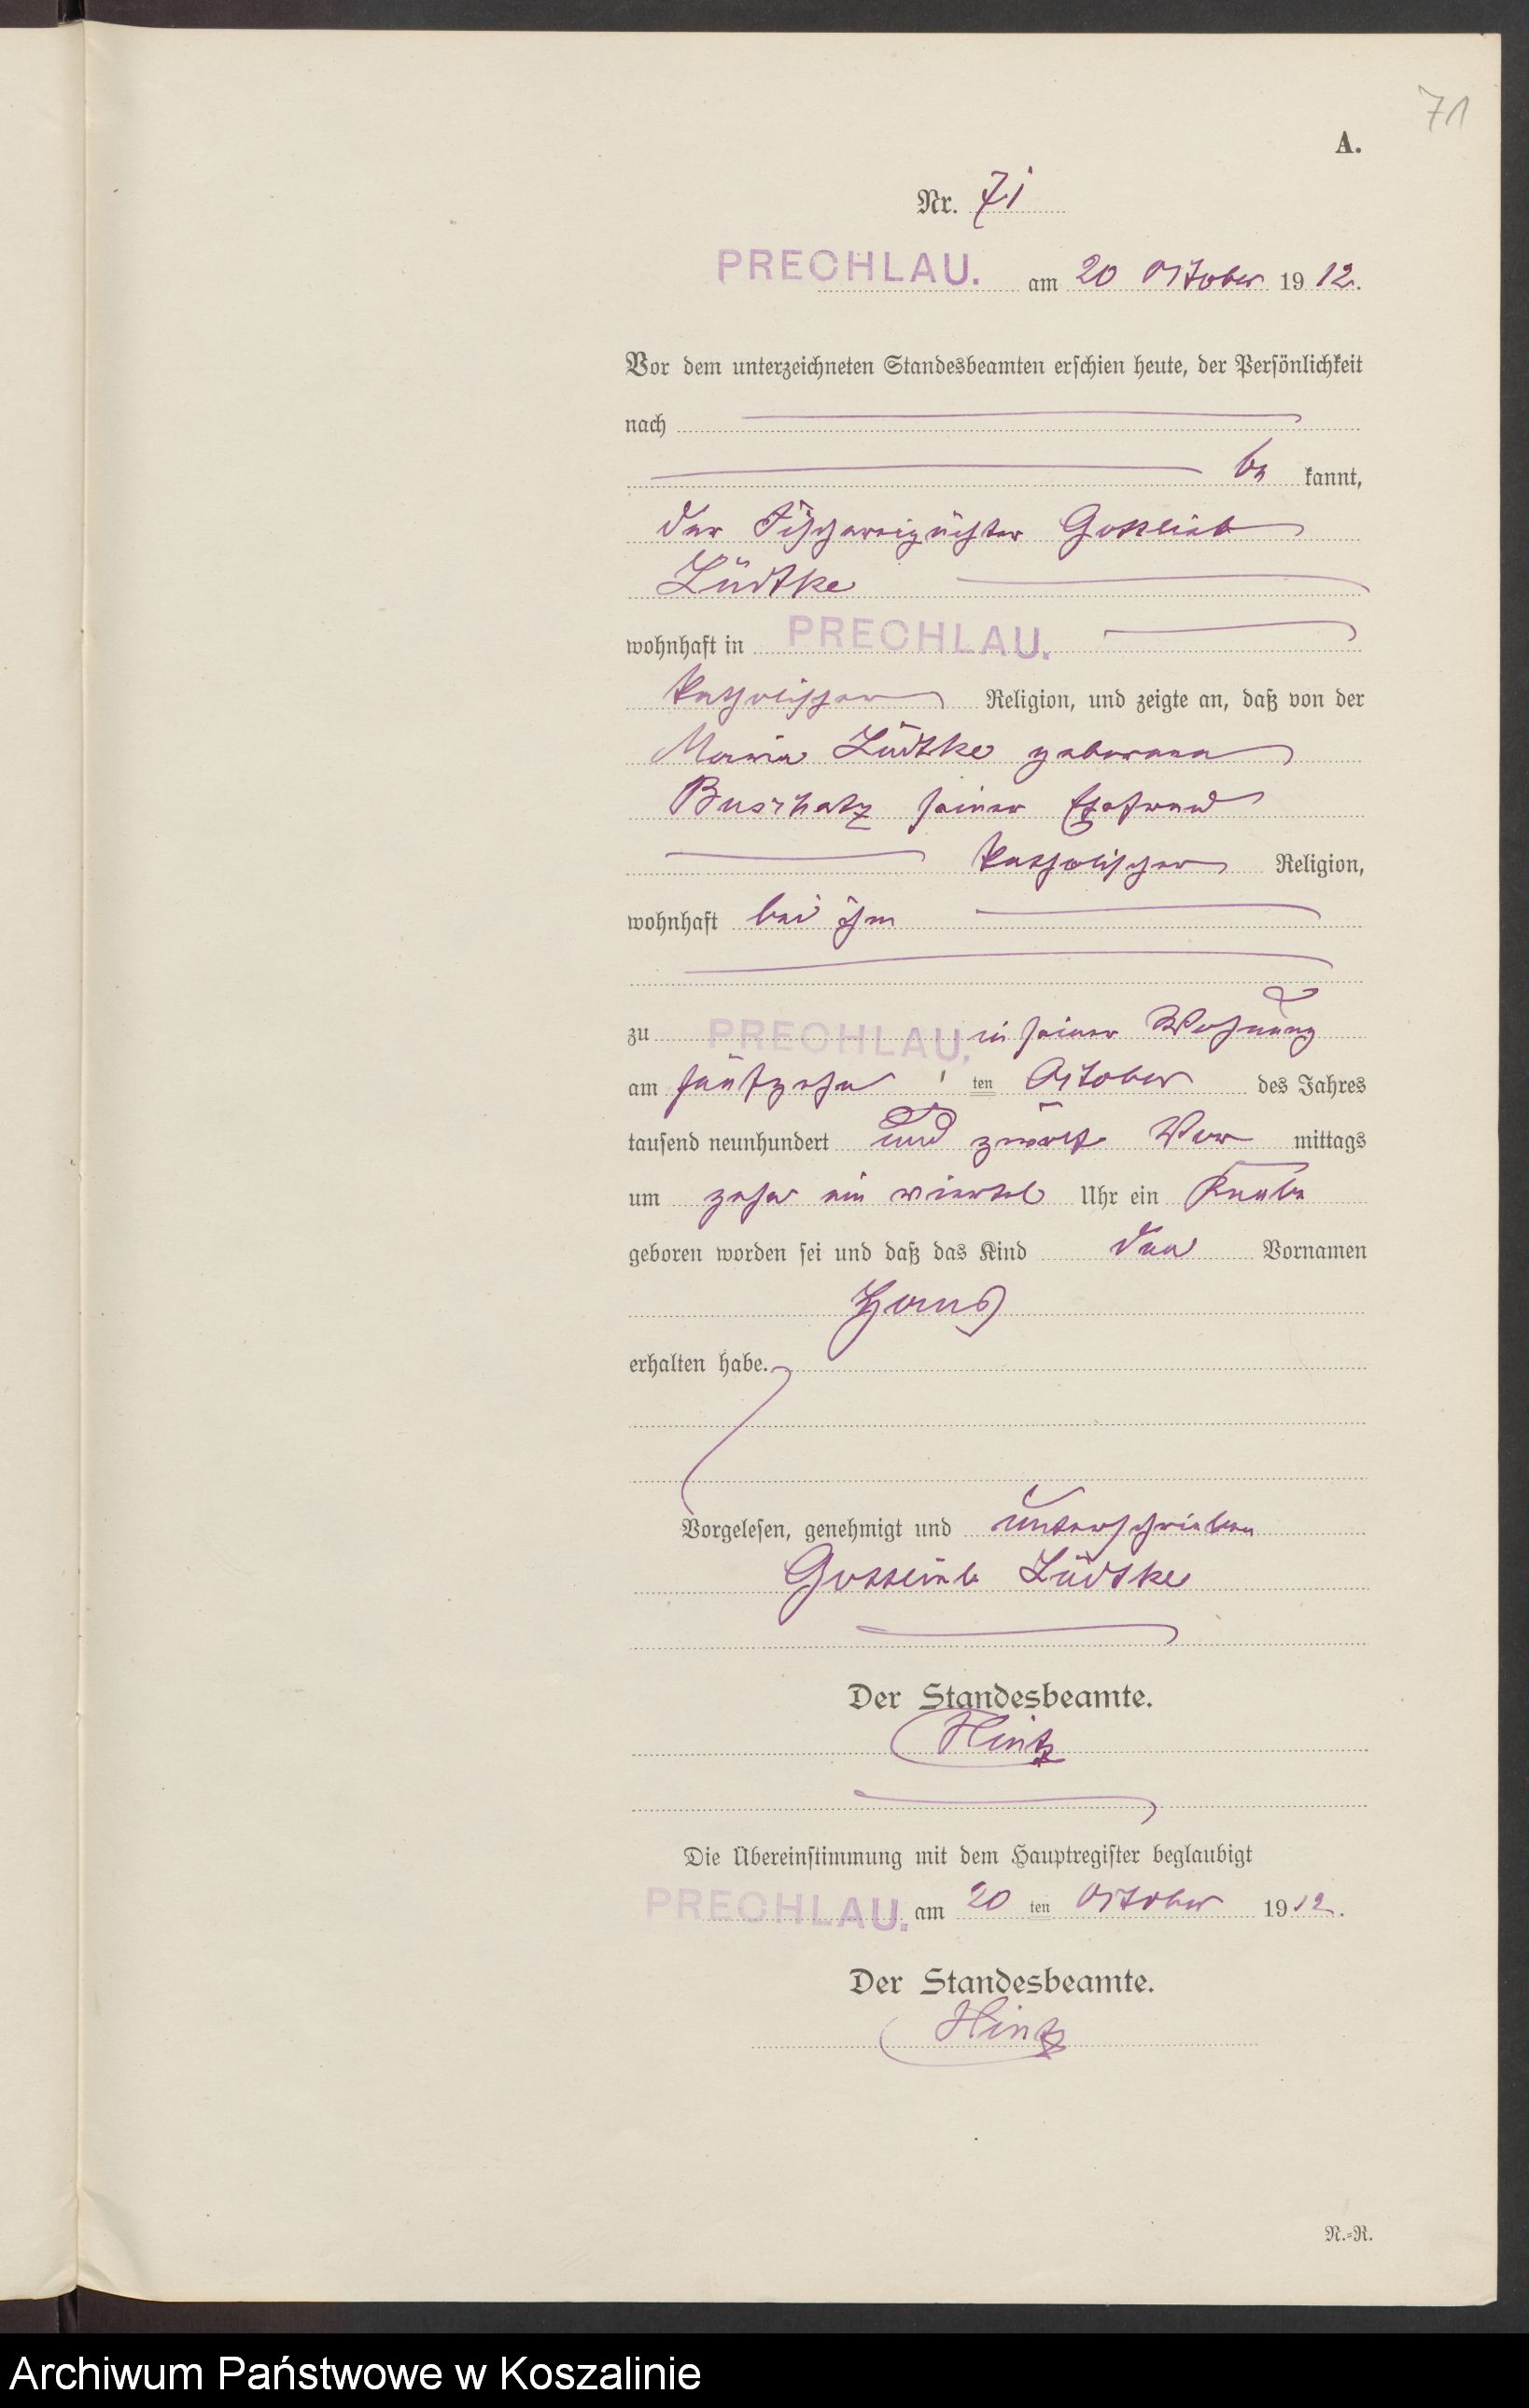 71
A.
Nr. 71
PRECHLAU. am 20 October 1912.
Vor dem unterzeichneten Standesbeamten erschien heute, der Persönlichkeit
nach
be kannt,
der Fischereipächter Gottlieb
Lüdtke
wohnhaft in PRECHLAU.
katholischer Religion, und zeigte an, daß von der
Maria Lüdtke geborene
seiner Ehefrau
katholischer Religion,
wohnhaft bei ihm
zu PRECHLAU. in seiner Wohnung
am fünfzehn ten October des Jahres
tausend neunhundert und zwölf Vor mittags
um zehn ein viertel Uhr ein Knabe
geboren worden sei und daß das Kind den Vornamen
Hans
erhalten habe.
Vorgelesen, genehmigt und unterschrieben
Gottlieb Lüdtke
Der Standesbeamte.
Hintz
Die Übereinstimmung mit dem Hauptregister beglaubigt
PRECHLAU. am 20 ten October 1912.
Der Standesbeamte.
Hintz
N.=R.
Archiwum Państwowe w Koszalinie